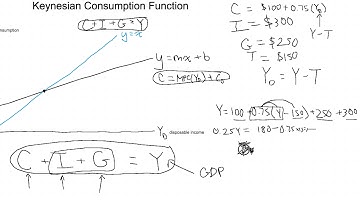 Keynesian Consumption Function
C + I + G = Y
y=x
y=mx+b
C = MPC(Y_D) + C_0
Y_D disposable income
C + I + G = Y
GDP
C = $100+0.75(Y_D)
Y-T
I = $300
G = $250
T = $150
Y_D = Y-T
Y = 100 + 0.75(Y - 150) + 250 + 300
0.25Y =